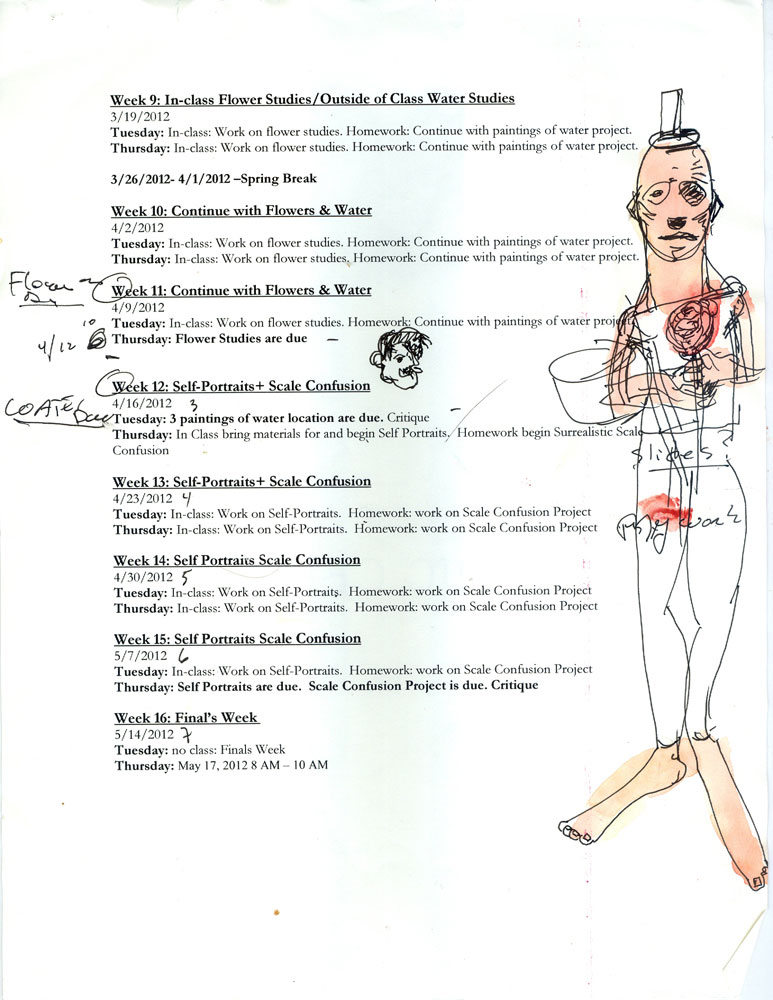 Week 9: In-class Flower Studies/Outside of Class Water Studies
3/19/2012
Tuesday: In-class: Work on flower studies. Homework: Continue with paintings of water project.
Thursday: In-class: Work on flower studies. Homework: Continue with paintings of water project.
3/26/2012- 4/1/2012 –Spring Break
Week 10: Continue with Flowers & Water
4/2/2012
Tuesday: In-class: Work on flower studies. Homework: Continue with paintings of water project.
Thursday: In-class: Work on flower studies. Homework: Continue with paintings of water project.
Week 11: Continue with Flowers & Water
4/9/2012
10
Tuesday: In-class: Work on flower studies. Homework: Continue with paintings of water project.
4/12
Thursday: Flower Studies are due
Week 12: Self-Portraits+ Scale Confusion
4/16/2012 3
Tuesday: 3 paintings of water location are due. Critique
Thursday: In Class bring materials for and begin Self Portraits. Homework begin Surrealistic Scale
Confusion
slides?
Week 13: Self-Portraits+ Scale Confusion
4/23/2012 4
Tuesday: In-class: Work on Self-Portraits. Homework: work on Scale Confusion Project
Thursday: In-class: Work on Self-Portraits. Homework: work on Scale Confusion Project
work
Week 14: Self Portraits Scale Confusion
4/30/2012 5
Tuesday: In-class: Work on Self-Portraits. Homework: work on Scale Confusion Project
Thursday: In-class: Work on Self-Portraits. Homework: work on Scale Confusion Project
Week 15: Self Portraits Scale Confusion
5/7/2012 6
Tuesday: In-class: Work on Self-Portraits. Homework: work on Scale Confusion Project
Thursday: Self Portraits are due. Scale Confusion Project is due. Critique
Week 16: Final's Week
5/14/2012 7
Tuesday: no class: Finals Week
Thursday: May 17, 2012 8 AM – 10 AM